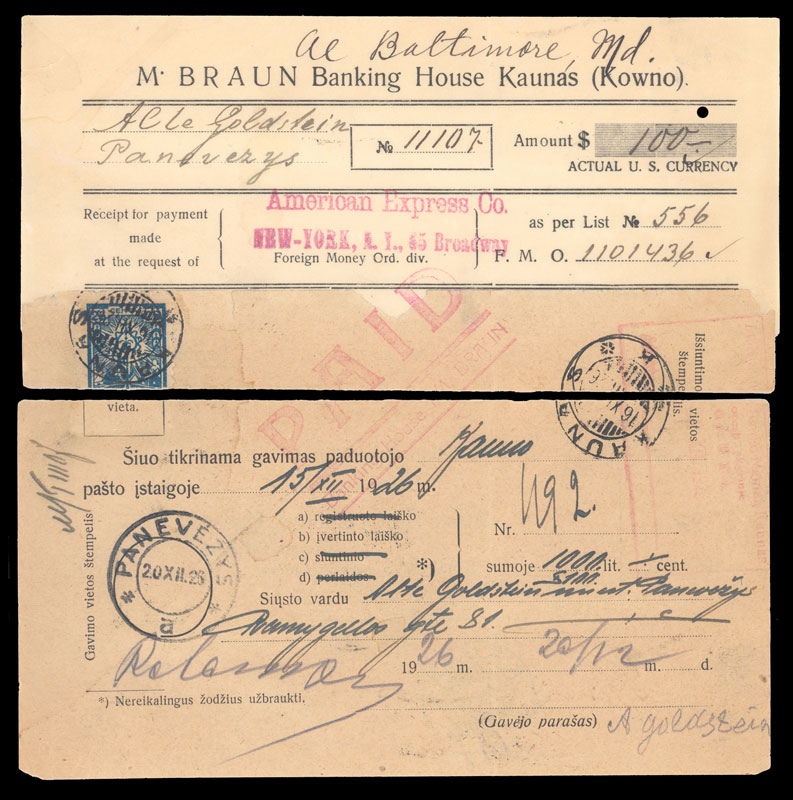 Ae Baltimore, Md.
M. BRAUN Banking House Kaunas (Kowno).
Alte Goldstein
Panevezys
№ 11107
Amount $ 100.-
ACTUAL U. S. CURRENCY
Receipt for payment
made
at the request of
American Express Co.
NEW-YORK, N. Y., 65 Broadway
Foreign Money Ord. div.
as per List № 556
F. M. O. 1101436
PAID
KAUNAS
Išsiuntimo vietos
štempelis.
vieta.
Šiuo tikrinama gavimas paduotojo Kauno
pašto įstaigoje 15/XII 1926 m.
a) registruoto laiško
b) įvertinto laiško
c) siuntinio
d) perlaidos
*)
Nr. 492.
sumoje 1000 lit. cent.
Siųsto vardu Alte Goldstein Panevėžys
Ramygalos gtė 81.
Gavimo vietos štempelis
PANEVĖŽYS
20 XII. 26
d
1926 m. 20/12 m. d.
*) Nereikalingus žodžius užbraukti.
(Gavėjo parašas) A goldstein